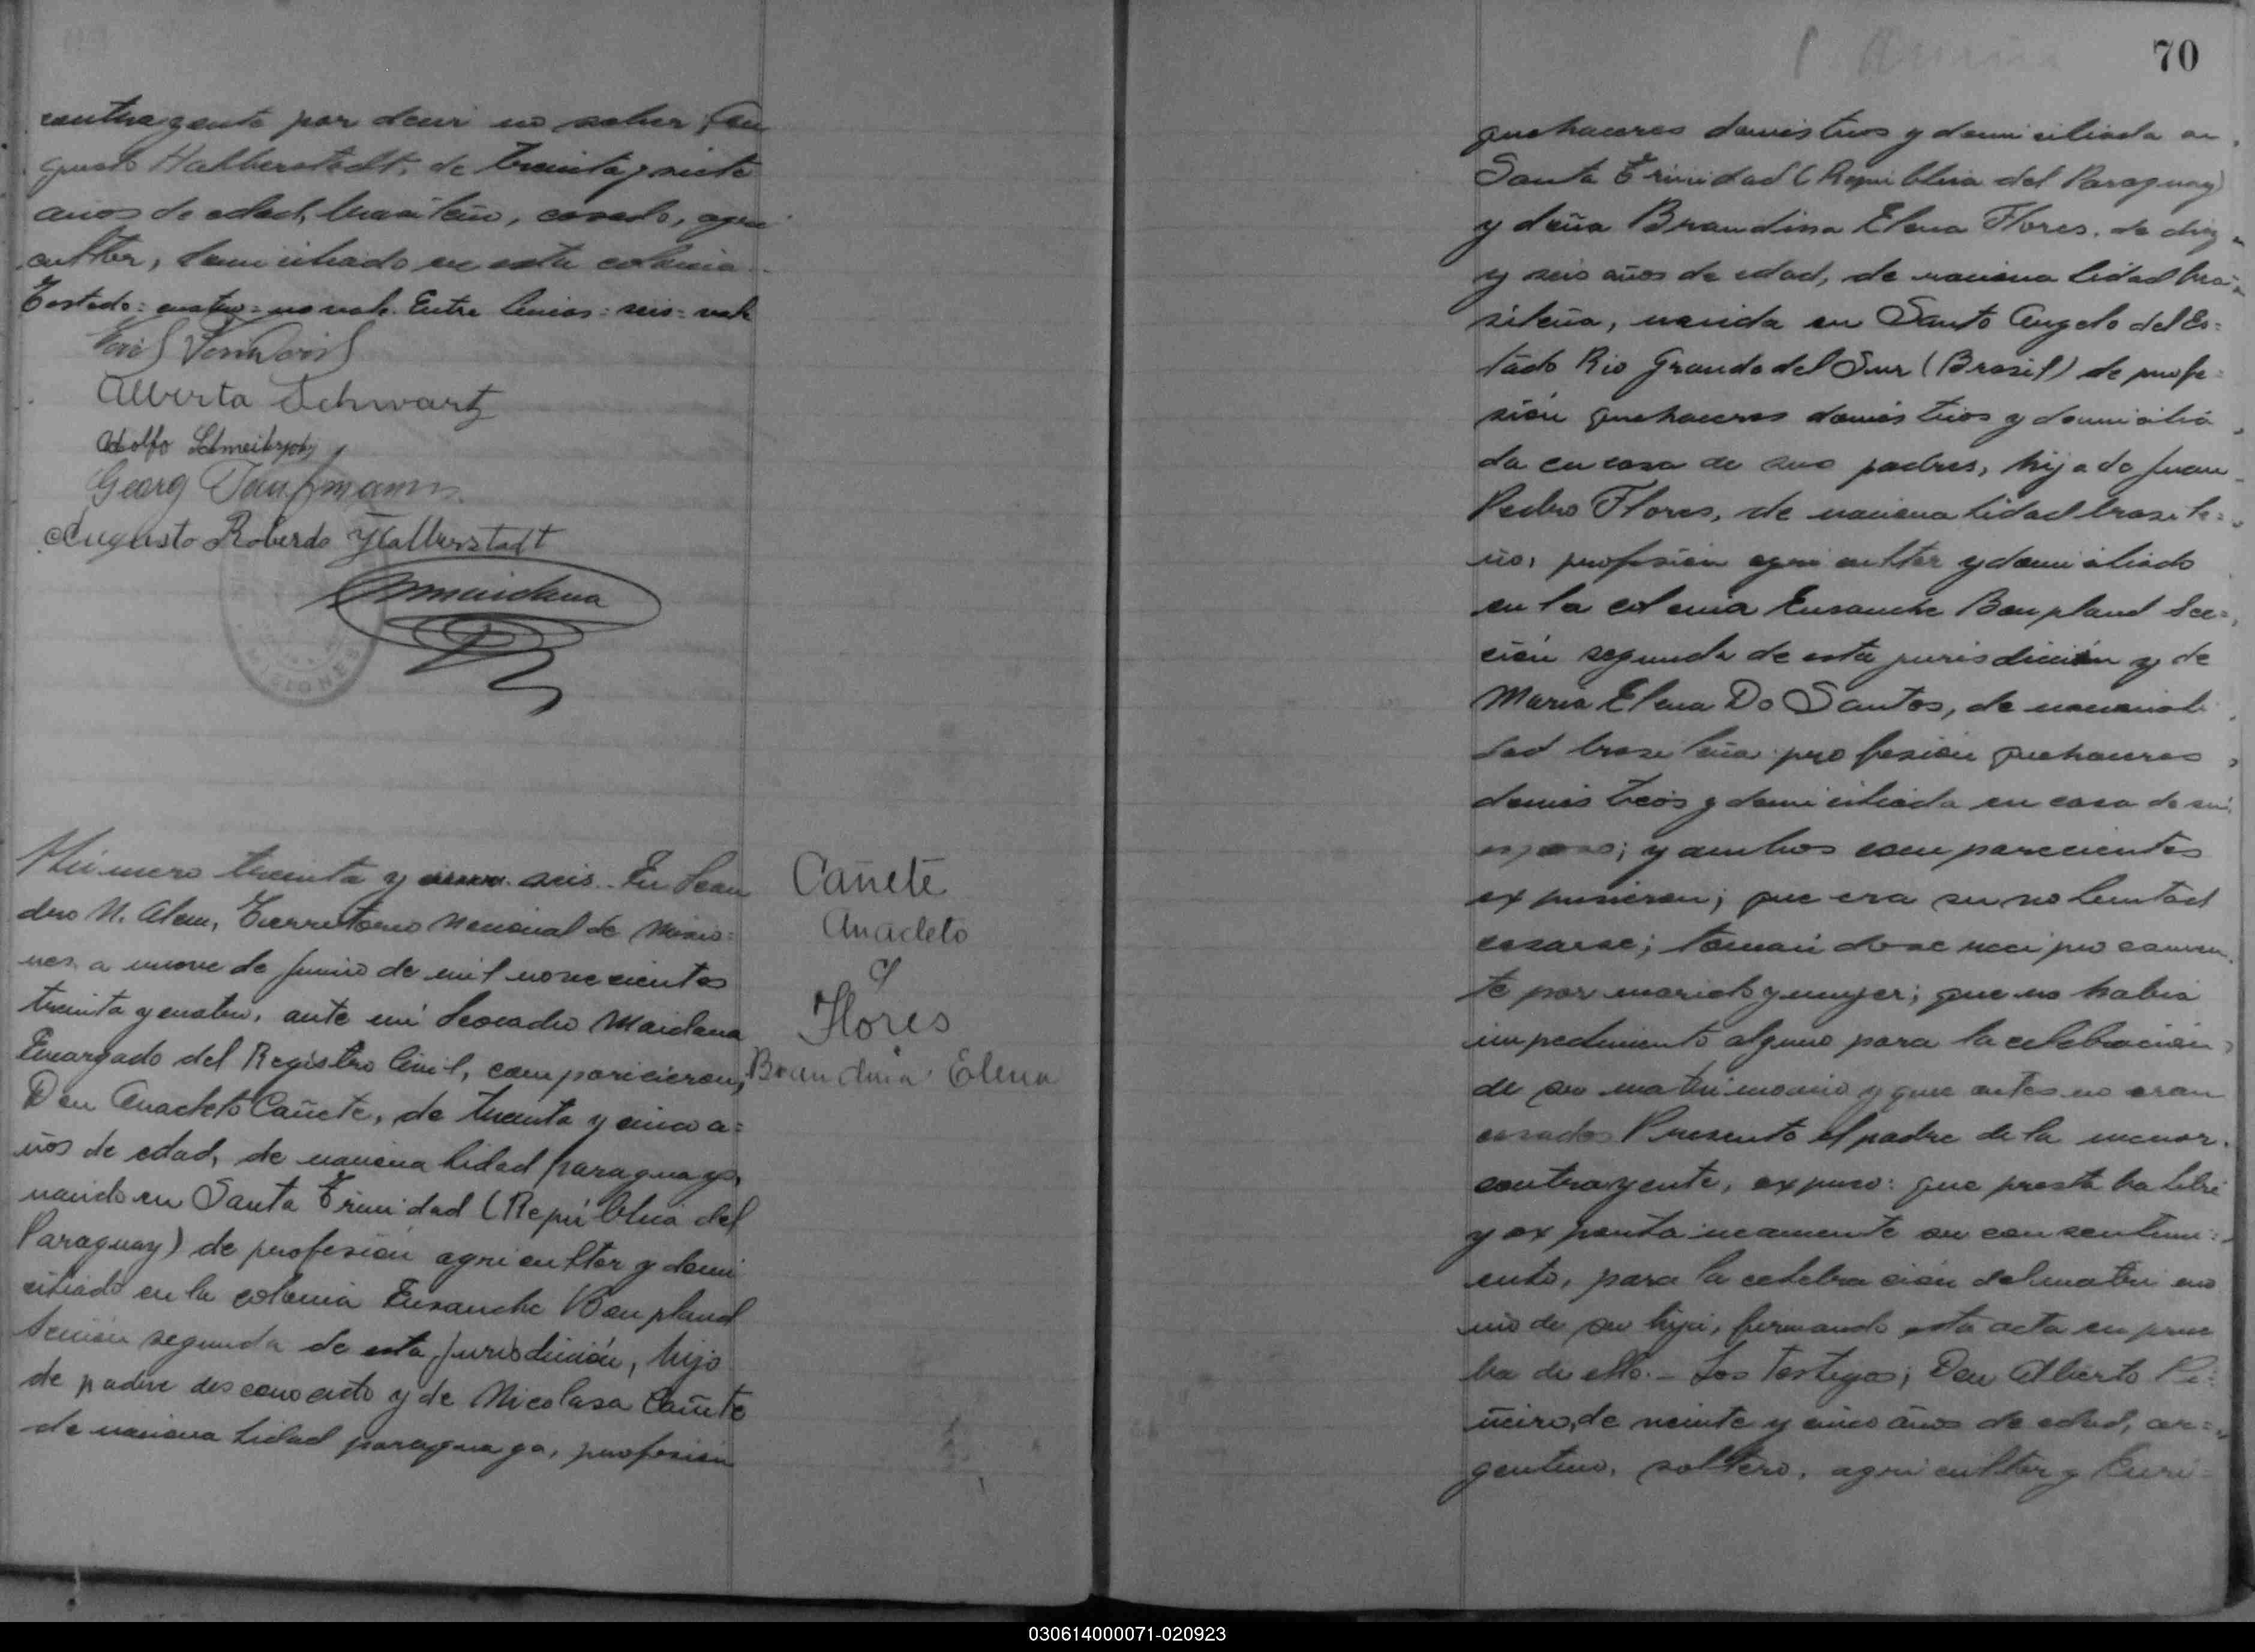 contrayente por decir no saber; Au
gusto Halberstadt, de treinta y siete
años de edad, brasileño, casado, agri
cultor, domiciliado en esta colonia.
Testado: cuatro = no vale. Entre lineas: seis = vale
Alberta Schwartz
Adolfo
Georg
Augusto Roberdo Halberstadt
Mmaidana
MISIONES
Número treinta y seis. En Lean
dro N. Alem, Territorio Nacional de Misio=
nes, a nueve de Junio de mil novecientos
treinta y cuatro, ante mí Leocadio Maidana
Encargado del Registro Civil, comparicieron,
Don Anacleto Cañete, de treinta y cinco a=
ños de edad, de nacionalidad paraguayo,
nacido en Santa Trinidad (República del
Paraguay) de profesión agricultor y domi
ciliado en la colonia Ensanche Bonpland
Sección segunda de esta Jurisdicción, hijo
de padre desconocido y de Nicolasa Cañete
de nacionalidad paraguaya, profesión
Cañete
Anacleto
y
Flores
Brandina Elena
70
quehaceres domésticos y domiciliada en
Santa Trinidad (República del Paraguay)
y doña Brandina Elena Flores, de diez
y seis años de edad, de nacionalidad bra=
sileña, nacida en Santo Angelo del Es=
tado Rio Grande del Sur (Brasil) de profe=
sión quehaceres domésticos y domicilia
da en casa de sus padres, hija de Juan
Pedro Flores, de nacionalidad brasile=
ño, profesión agricultor y domiciliado
en la colonia Ensanche Bonpland Sec=
ción segunda de esta jurisdicción y de
Maria Elena Do Santos, de nacionali
dad brasileña profesión quehaceres
domésticos y domiciliada en casa de su
esposo; y ambos comparecientes
expusieron; que era su voluntad
casarse; tomándose recíprocamen
te por marido y mujer; que no había
impedimento alguno para la celebración
de su matrimonio y que antes no eran
casados Presente el padre de la menor
contrayente, expuso: que prestaba libre
y expontáneamente su consentimi=
ento, para la celebración del matrimo
nio de su hija, firmando esta acta en prue
ba de ello.- Los Testigos; Don Alberto Pi=
ñeiro, de veinte y cinco años de edad, ar=
gentino, soltero, agricultor y Euri=